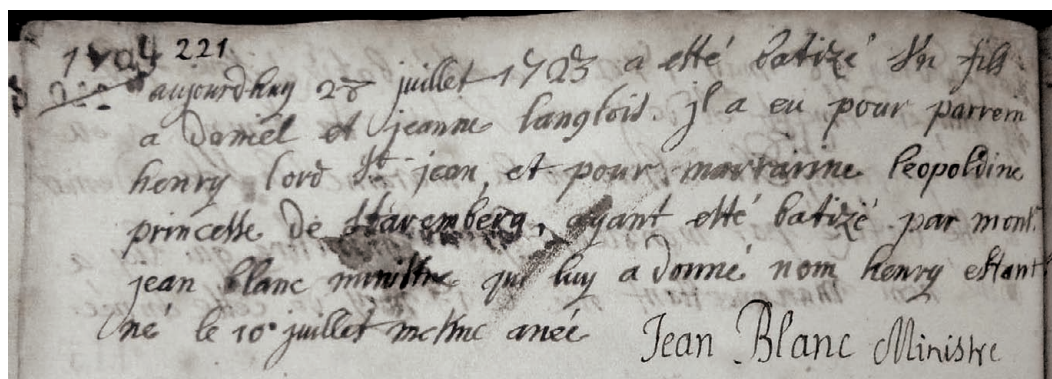 1704 221
aujourdhuy 28 juillet 1723 a esté batizé Un fils
a Daniel et jeanne langlois. jl a eu pour parrein
henry lord St. jean, et pour marrainne leopoldine
princesse de Staremberg, ayant esté batizé par monsr.
jean blanc ministre qui luy a donné nom henry estant
né le 10e juillet mesme anée Jean Blanc Ministre